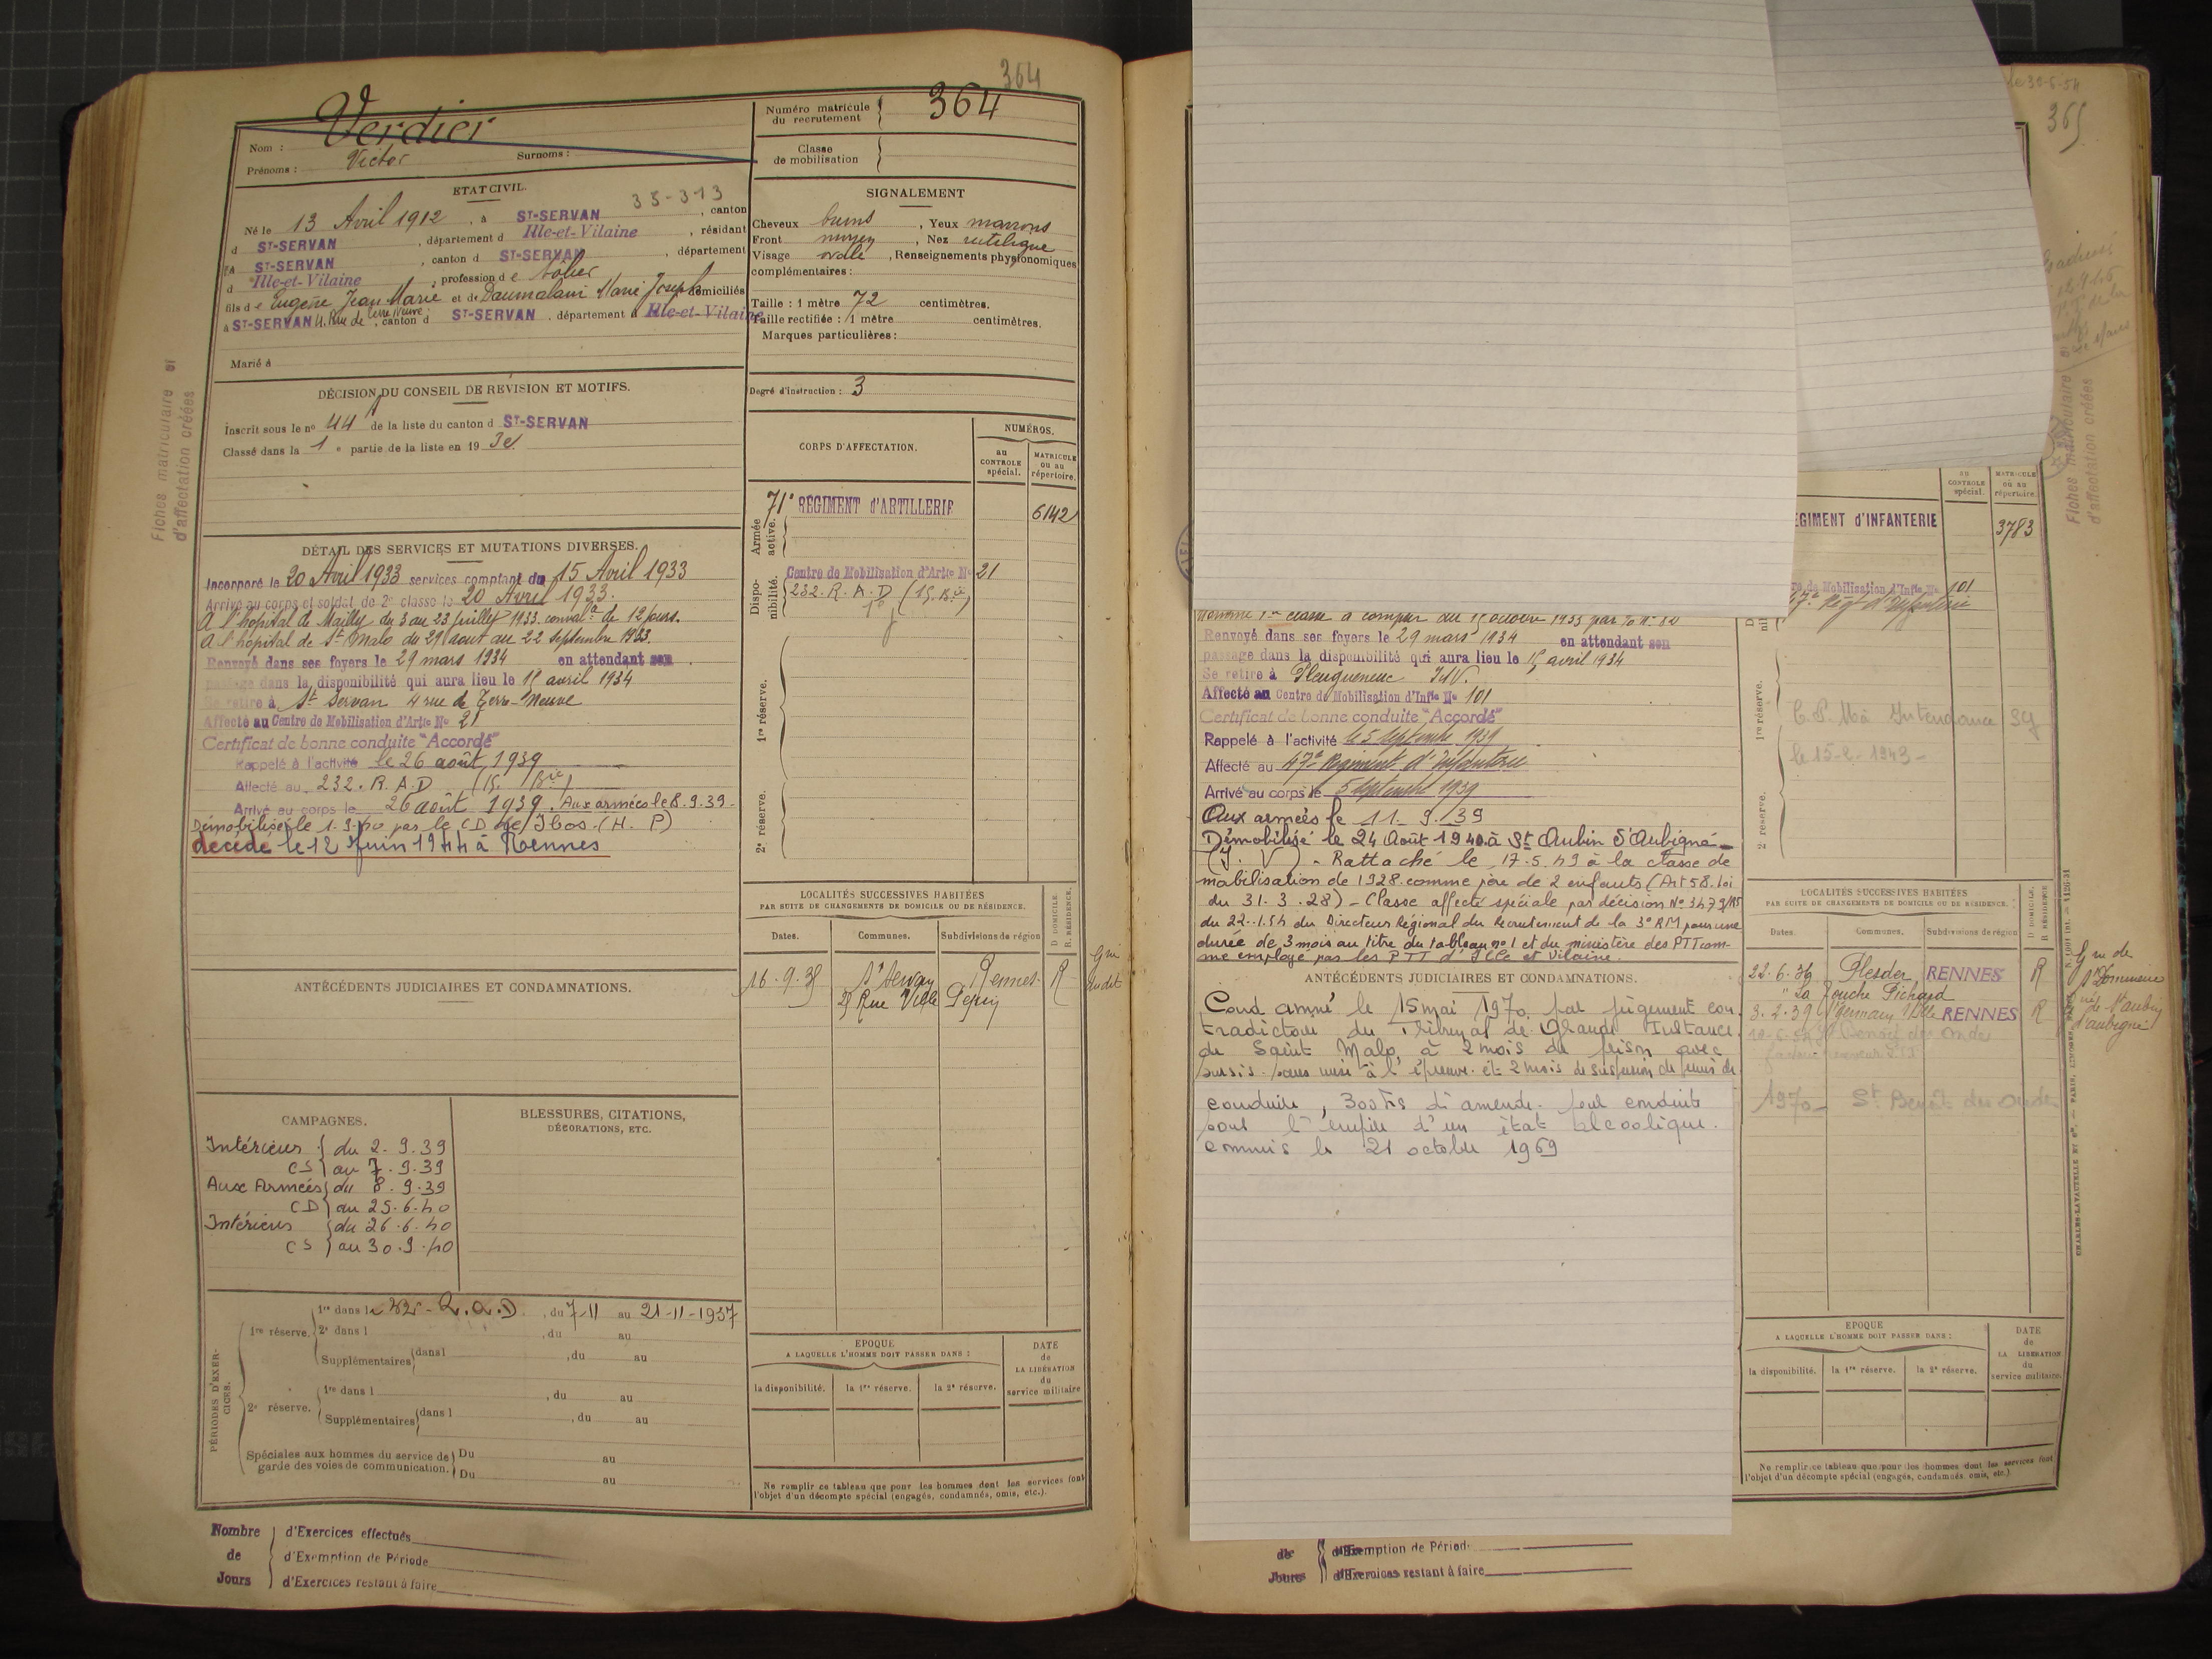 364
Verdier
Nom :
Victor
Prénoms :
Surnoms :
Numéro matricule du recrutement
364
Classe de mobilisation
ETAT CIVIL.
35-313
Né le 13 Avril 1912, à ST-SERVAN, canton
d ST-SERVAN, département d Ille-et-Vilaine, résidant
à ST-SERVAN, canton d ST-SERVAN, département
d Ille-et-Vilaine, profession de tôlier
fils de Eugène Jean Marie et de Daumalain Marie Joseph domiciliés
à ST-SERVAN 4 Rue de Terre Neuve, canton d ST-SERVAN, département d Ille-et-Vilaine
Marié à
SIGNALEMENT
Cheveux bruns, Yeux marrons
Front moyen, Nez rectiligne
Visage ovale, Renseignements physionomiques
complémentaires :
Taille : 1 mètre 72 centimètres.
Taille rectifiée : 1 mètre centimètres.
Marques particulières :
Degré d'instruction : 3
DÉCISION DU CONSEIL DE RÉVISION ET MOTIFS.
Inscrit sous le no 44 de la liste du canton d ST-SERVAN
Classé dans la 1e partie de la liste en 19
CORPS D'AFFECTATION.
NUMÉROS.
au CONTROLE spécial.
MATRICULE ou au répertoire.
Armée active.
71e RÉGIMENT d'ARTILLERIE
6142
Disponibilité.
Centre de Mobilisation d'Artie No 21
232. R. A. D (15. Bie)
1re réserve.
2e réserve.
Fiches matriculaire et
d'affectation créées
DÉTAIL DES SERVICES ET MUTATIONS DIVERSES.
Incorporé le 20 Avril 1933 services comptant du 15 Avril 1933
Arrivé au corps et soldat de 2e classe le 20 Avril 1933.
A l'hôpital de Mailly du 3 au 23 juillet 1933. conval. de 12 jours.
A l'hôpital de St Malo du 29 aout au 22 septembre 1933.
Renvoyé dans ses foyers le 29 mars 1934 en attendant son
passage dans la disponibilité qui aura lieu le 15 avril 1934
Se retire à St Servan 4 rue de Terre-Neuve
Affecté au Centre de Mobilisation d'Artie No 21
Certificat de bonne conduite "Accordé"
Rappelé à l'activité le 26 août 1939
Affecté au 232. R. A. D (15. Bie)
Arrivé au corps le 26 août 1939. Aux armées le 8.9.39
Démobilisé le 1.9.40 par le CD de Ibos. (H. P)
décédé le 12 Juin 1944 à Rennes
LOCALITÉS SUCCESSIVES HABITÉES
PAR SUITE DE CHANGEMENTS DE DOMICILE OU DE RÉSIDENCE.
D DOMICILE. R. RÉSIDENCE.
Dates.
Communes.
Subdivisions de région
16-9-35 St Servan Rennes R
Rue Ville Pepin
Gie
ANTÉCÉDENTS JUDICIAIRES ET CONDAMNATIONS.
CAMPAGNES.
Intérieur du 2.9.39
CS au 7.9.39
Aux Armées du 8.9.39
CD au 25.6.40
Intérieur du 26.6.40
CS au 30.9.40
BLESSURES, CITATIONS,
DÉCORATIONS, ETC.
PÉRIODES D'EXERCICES.
1re réserve.
1re dans le 232 - R.A.D, du 7-11 au 21-11-1937
2e dans l, du au
Supplémentaires dans l, du au
2e réserve.
1re dans l, du au
Supplémentaires dans l, du au
Spéciales aux hommes du service de
garde des voies de communication.
Du au
Du au
EPOQUE
A LAQUELLE L'HOMME DOIT PASSER DANS :
DATE de LA LIBÉRATION du service militaire
la disponibilité.
la 1re réserve.
la 2e réserve.
Ne remplir ce tableau que pour les hommes dont les services font
l'objet d'un décompte spécial (engagés, condamnés, omis, etc.).
Nombre de Jours
d'Exercices effectués
d'Exemption de Période
d'Exercices restant à faire
30-6-54
365
au CONTROLE spécial.
MATRICULE ou au répertoire.
EGIMENT d'INFANTERIE
3783
de Mobilisation d'Infie No 101
47e Régt d'Infanterie
Fiches matriculaire et
d'affectation créées
Nommé 1re classe à compter du 15 octobre 1933 par
Renvoyé dans ses foyers le 29 mars 1934 en attendant son
passage dans la disponibilité qui aura lieu le 15 avril 1934
Se retire à Pleugueneuc I&V.
Affecté au Centre de Mobilisation d'Infie No 101
Certificat de bonne conduite "Accordé"
Rappelé à l'activité le 5 Septembre 1939
Affecté au 47e Régiment d'Infanterie
Arrivé au corps le 5 Septembre 1939
Aux armées le 11.9.39
Démobilisé le 24 Août 1940 à St Aubin d'Aubigné
(I. V) - Rattaché le 17.5.49 à la classe de
mobilisation de 1928 comme père de 2 enfants (Art 58. loi
du 31.3.28) - Classé affecté spécial par décision No
du 22.1.54 du Directeur Régional du Recrutement de la 3e RM pour une
durée de 3 mois au titre du tableau no 1 et du ministère des PTT com-
me employé par les PTT d'Ille et Vilaine.
1re réserve.
Intendance 39
le 15-2-1943
2e réserve.
ANTÉCÉDENTS JUDICIAIRES ET CONDAMNATIONS.
Condamné le 15 mai 1970 par jugement con-
tradictoire du Tribunal de Grande Instance
de Saint Malo, à 2 mois de prison avec
sursis sans mise à l'épreuve et 2 mois de suspension de permis de
conduire, 300 Frs d'amende. pour conduite
sous l'empire d'un état alcoolique.
commis le 21 octobre 1969
LOCALITÉS SUCCESSIVES HABITÉES
PAR SUITE DE CHANGEMENTS DE DOMICILE OU DE RÉSIDENCE.
D DOMICILE. R RÉSIDENCE
Dates.
Communes.
Subdivisions de région
22.6.36 Plesder RENNES R
" La Touche Pichard
3.2.39 St Germain s/Ille RENNES R
1970 St Benoit des Ondes
Gie de
St Domineuc
de St Aubin
d'aubigné
CHARLES-LAVAUZELLE ET Cie. — PARIS, LIMOGES, NANCY
EPOQUE
A LAQUELLE L'HOMME DOIT PASSER DANS :
DATE de LA LIBÉRATION du service militaire.
la disponibilité.
la 1re réserve.
la 2e réserve.
Ne remplir ce tableau que pour les hommes dont les services font
l'objet d'un décompte spécial (engagés, condamnés, omis, etc.).
de Jours
d'Exemption de Période
d'Exercices restant à faire